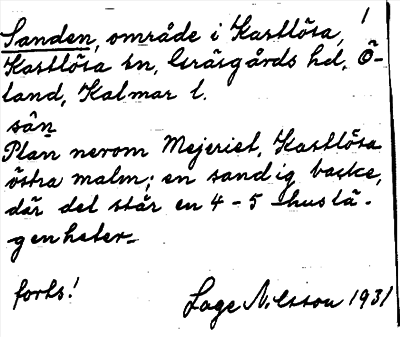 1
Sanden, område i Kastlösa,
Kastlösa sn, Gräsgårds hd, Ö-
land, Kalmar l.
sän
Plan nerom Mejeriet, Kastlösa
östra malm; en sandig backe,
där det står en 4-5 huslä-
genheter.
forts!
Lage Nilsson 1931